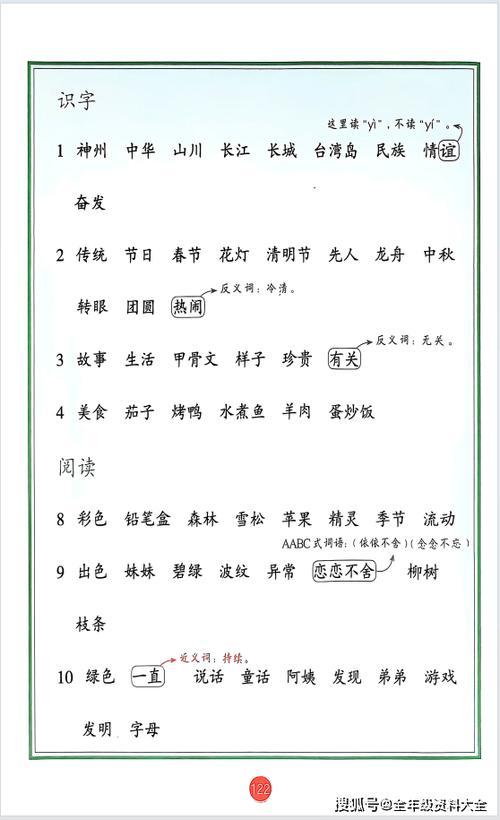 识字
这里读“yì”，不读“yí”。
1 神州 中华 山川 长江 长城 台湾岛 民族 情谊
奋发
2 传统 节日 春节 花灯 清明节 先人 龙舟 中秋
反义词：冷清。
转眼 团圆 热闹
反义词：无关。
3 故事 生活 甲骨文 样子 珍贵 有关
4 美食 茄子 烤鸭 水煮鱼 羊肉 蛋炒饭
阅读
8 彩色 铅笔盒 森林 雪松 苹果 精灵 季节 流动
AABC式词语：（依依不舍）（念念不忘）
9 出色 妹妹 碧绿 波纹 异常 恋恋不舍 柳树
枝条
近义词：持续。
10 绿色 一直 说话 童话 阿姨 发现 弟弟 游戏
发明 字母
122
搜狐号@全年级资料大全